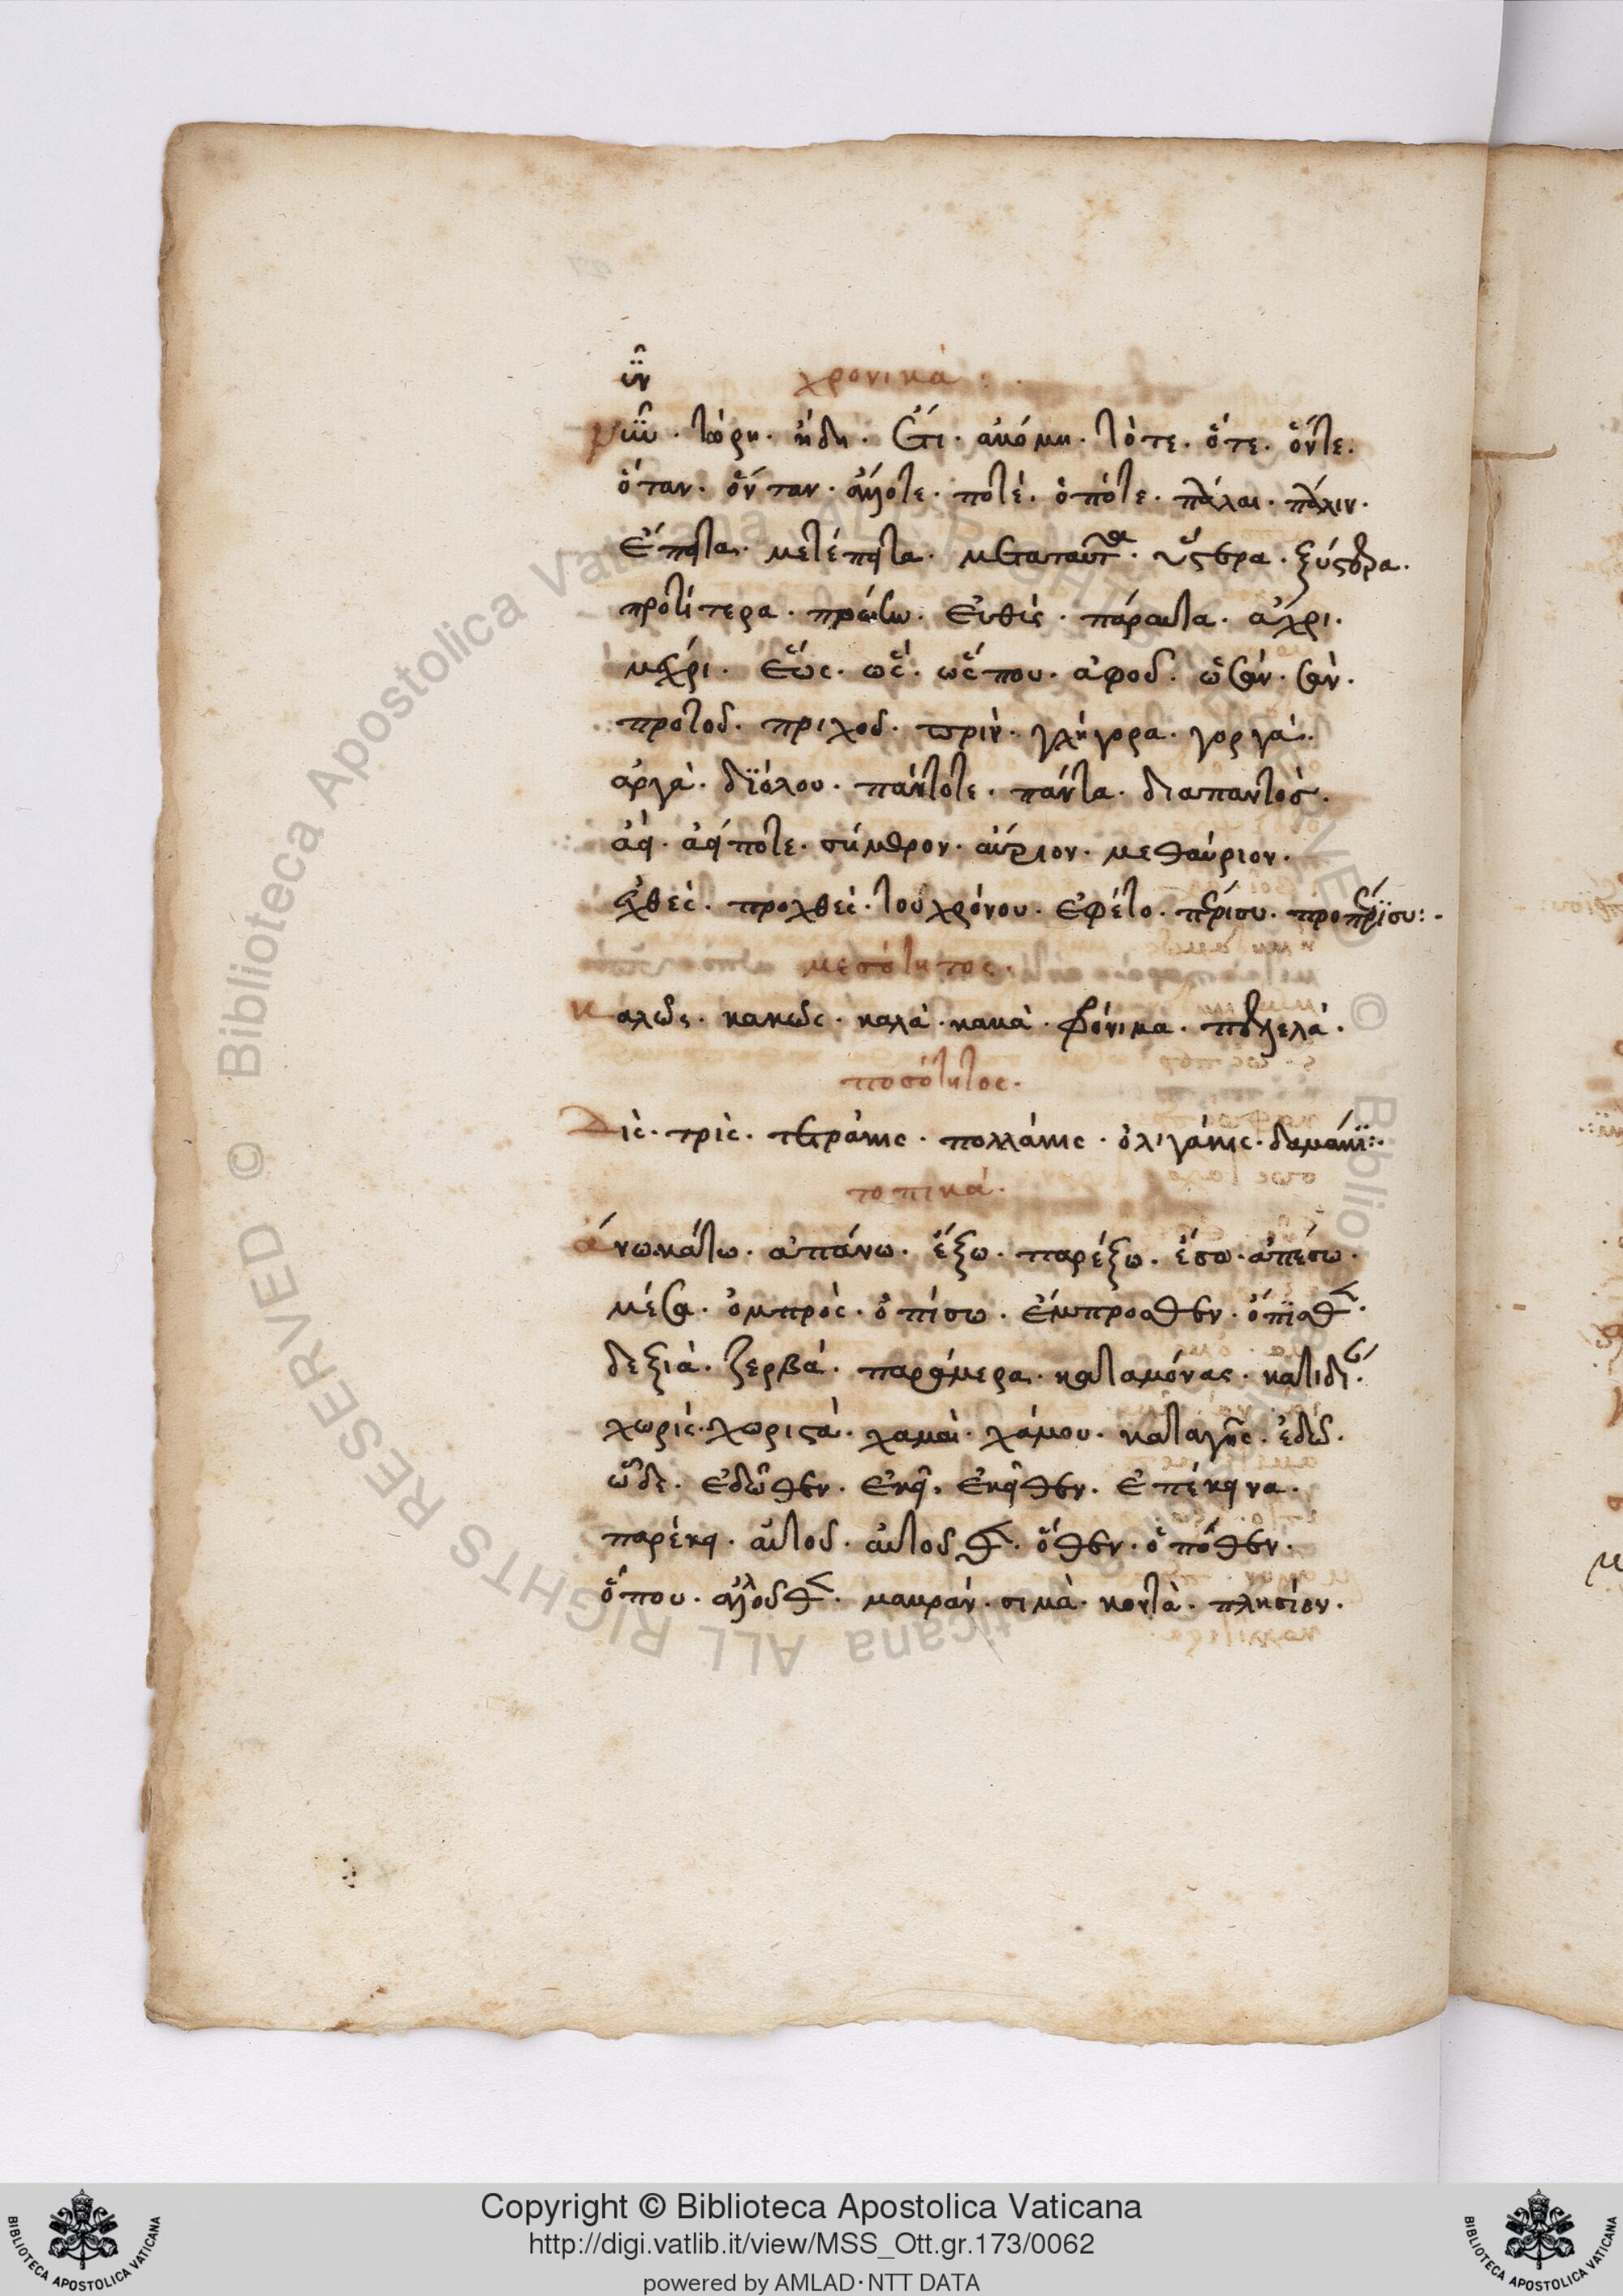 χρονικὰ:
νῦν· τώρη· ἤδη· ἔτι· ἀκόμη· τότε· ὅτε· ὅντε·
ὅταν· ὅνταν· ἄλλοτε· ποτέ· ὁπότε· πάλαι· πάλιν·
ἔπειτα· μετέπειτα· μεταταῦτα· ὕστερα· ξύστερα·
προτίτερα· πρώτω· εὐθὶς· πάραυτα· ἄχρι·
μέχρι· ἕως· ὡς· ὥς που· ἀφοῦ· ὡσὰν· σὰν·
προτοῦ· πριχοῦ· πρὶν· γλήγορα· γοργά·
ἀργά· διόλου· πάντοτε· πάντα· διαπαντός·
ἀεί· ἀείποτε· σήμερον· αὔριον· μεθαύριον·
ἐχθές· προχθές· τοῦ χρόνου· ἐφέτο· πέρισυ· προπέρισυ:
μεσότητος·
καλῶς· κακῶς· καλὰ· κακὰ· φρόνιμα·
ποσότητος·
Δὶς· τρὶς· τετράκις· πολλάκις· ὀλιγάκις·
τοπικά·
άνω κάτω· ἀπάνω· ἔξω· παρέξω· ἔσω· ἀπέσω·
μέσα· ὀμπρὸς· ὀπίσω· ἔμπροσθεν· ὄπισθεν·
δεξιὰ· ζερβά· παράμερα· καταμόνας· κατιδίαν·
χωρίς· χωριστά· χαμαὶ· χάμου· καταγῆς· ἐδῶ·
ὧδε· ἐδῶθεν· ἐκεῖ· ἐκεῖθεν· ἐπέκεινα·
παρέκει· αὐτοῦ· αὐτοῦθεν· ὅθεν· ὁπόθεν·
ὅπου· ἀλλοῦθεν· μακράν· σιμὰ· κοντὰ· πλησίον·
Copyright © Biblioteca Apostolica Vaticana
http://digi.vatlib.it/view/MSS_Ott.gr.173/0062
powered by AMLAD·NTT DATA
BIBLIOTECA APOSTOLICA VATICANA
BIBLIOTECA APOSTOLICA VATICANA